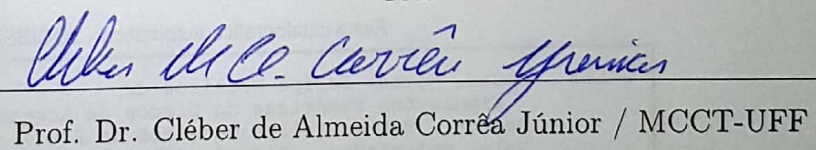 Cleber de A. Corrêa Junior
Prof. Dr. Cléber de Almeida Corrêa Júnior / MCCT-UFF